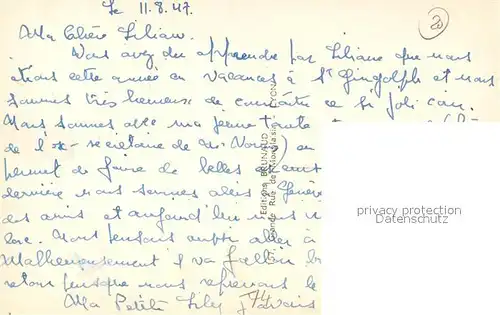 le 11.8.47.
Ma Chère Lilian.
Vous avez du apprendre par Liliane que nous
étions cette année en vacances à St Gingolph et nous
sommes très heureux de connaître ce si joli coin.
Nous sommes avec ma jeune tante
de l'ex-secrétaire de
permet de faire de belles
dernière nous sommes allés Genève
des amis et aujourd'hui nous
lac. Nous pensons aussi aller à
Malheureusement il va falloir
puisque nous reprenons le
Ma Petite Lily
74
20
Editions BRUNAUD
Grande Rue de Monplaisir - LYON
privacy protection
Datenschutz